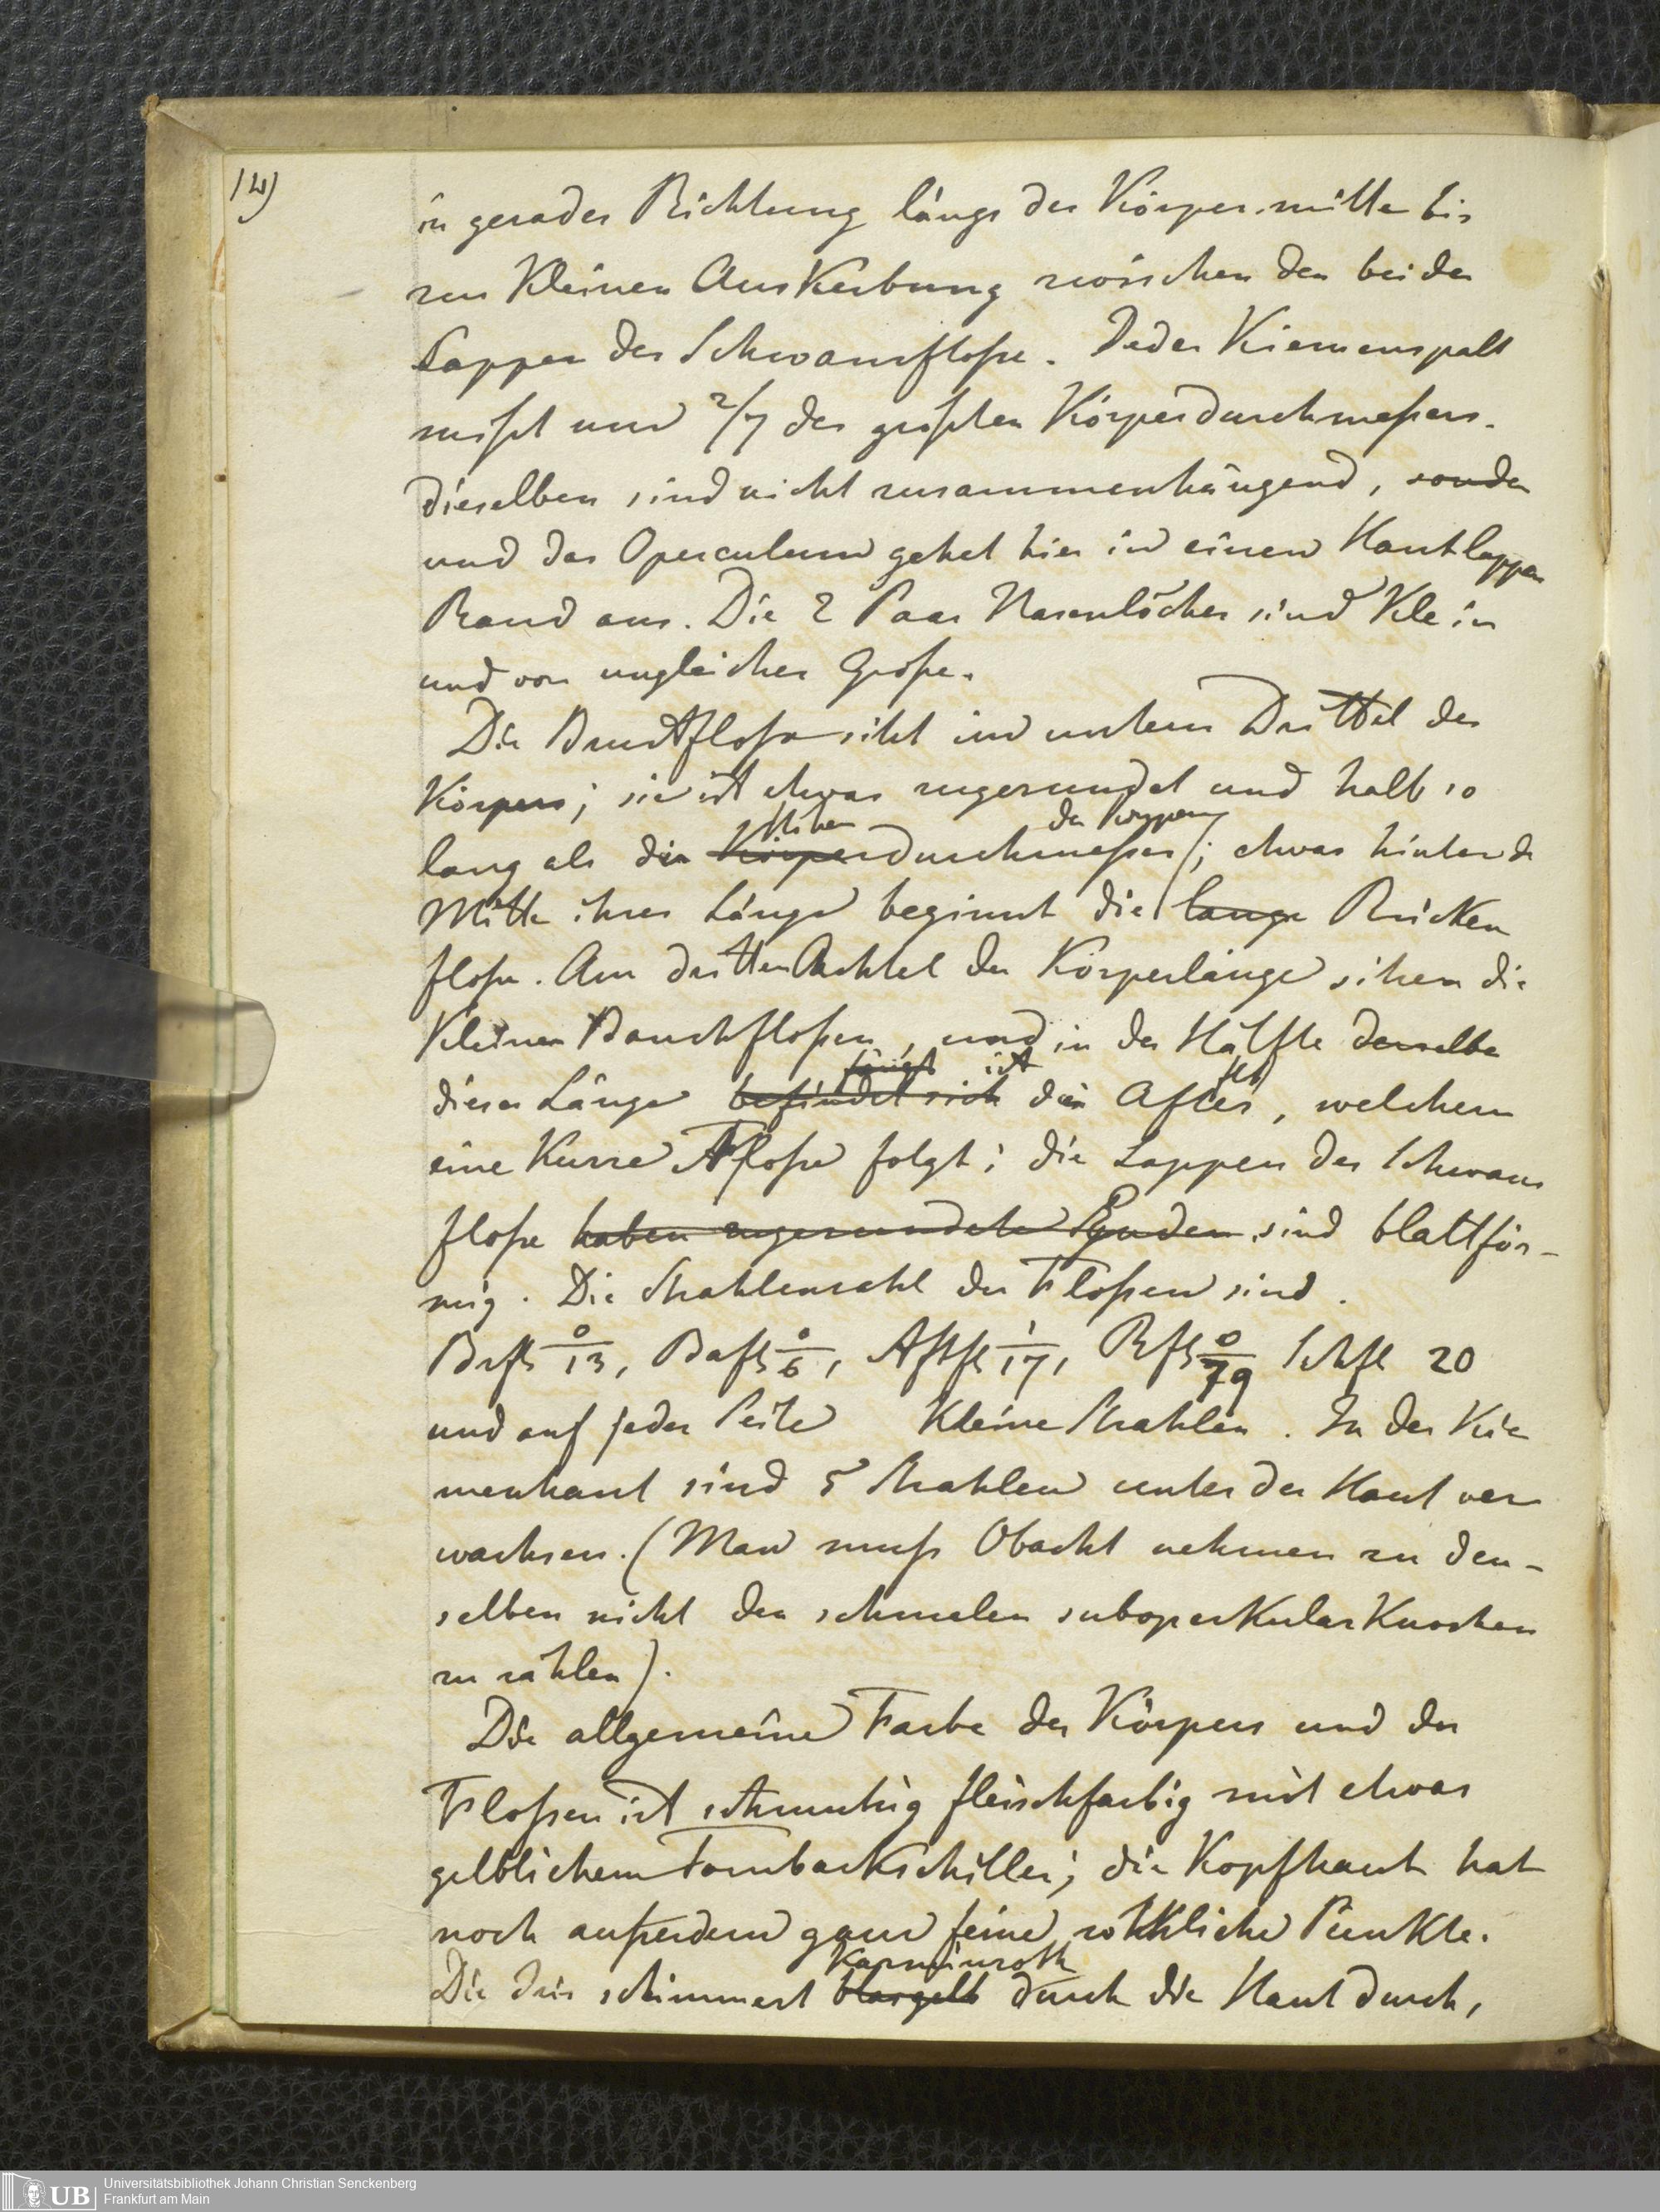 14)
in gerader Richtung längs der Körpermitte bis
zur Kleinen AusKerbung zwischen den beiden
Lappen der Schwanzfloße. Jeder Kiemenspalt
mißt nur 2/7 des größten Körperdurchmeßers.
dieselben sind nicht zusammenhängend, sonder
und das Operculum gehet hier in einen Hautlappen
Rand aus. Die 2 Paar Nasenlöcher sind Klein
und von ungleicher Größe.
Die Brustfloße sitzt im untern Drittel des
Körpers; sie ist etwas zugerundet und halb so
Höhen der Körpers
lang als der Körperdurchmeßer; etwas hinter der
Mitte ihrer Länge beginnt die lange Rücken
floße. Am dritten Achtel der Körperlänge sitzen die
Kleinen Bauchfloßen, und in der Hälfte derselben
fängt ist
dieser Länge befindet sich der After, welchem
eine Kurze Afloße folgt; die Lappen der Schwanz
floße haben zugerundete Enden sind blattför-
mig. Die Strahlenzahl der Floßen sind.
Brfl 0/13, Bafl 0/6, Aftfl 1/17, Rfl 0/79 Schfl 20
und auf jeder Seite Kleine Strahlen. In der Kie
menhaut sind 5 Strahlen unter der Haut ver
wachsen. (Man muß Obacht nehmen zu den-
selben nicht den schmalen suboperKular Knochen
zu zählen).
Die allgemeine Farbe des Körpers und der
Floßen ist schmutzig fleischfarbig mit etwas
gelblichem TombackSchiller; die Kopfhaut hat
noch außerdem ganz feine röthliche PunKte.
Karminroth
Die Iris schimmert blasgelb durch die Haut durch,
Universitätsbibliothek Johann Christian Senckenberg
Frankfurt am Main
UB